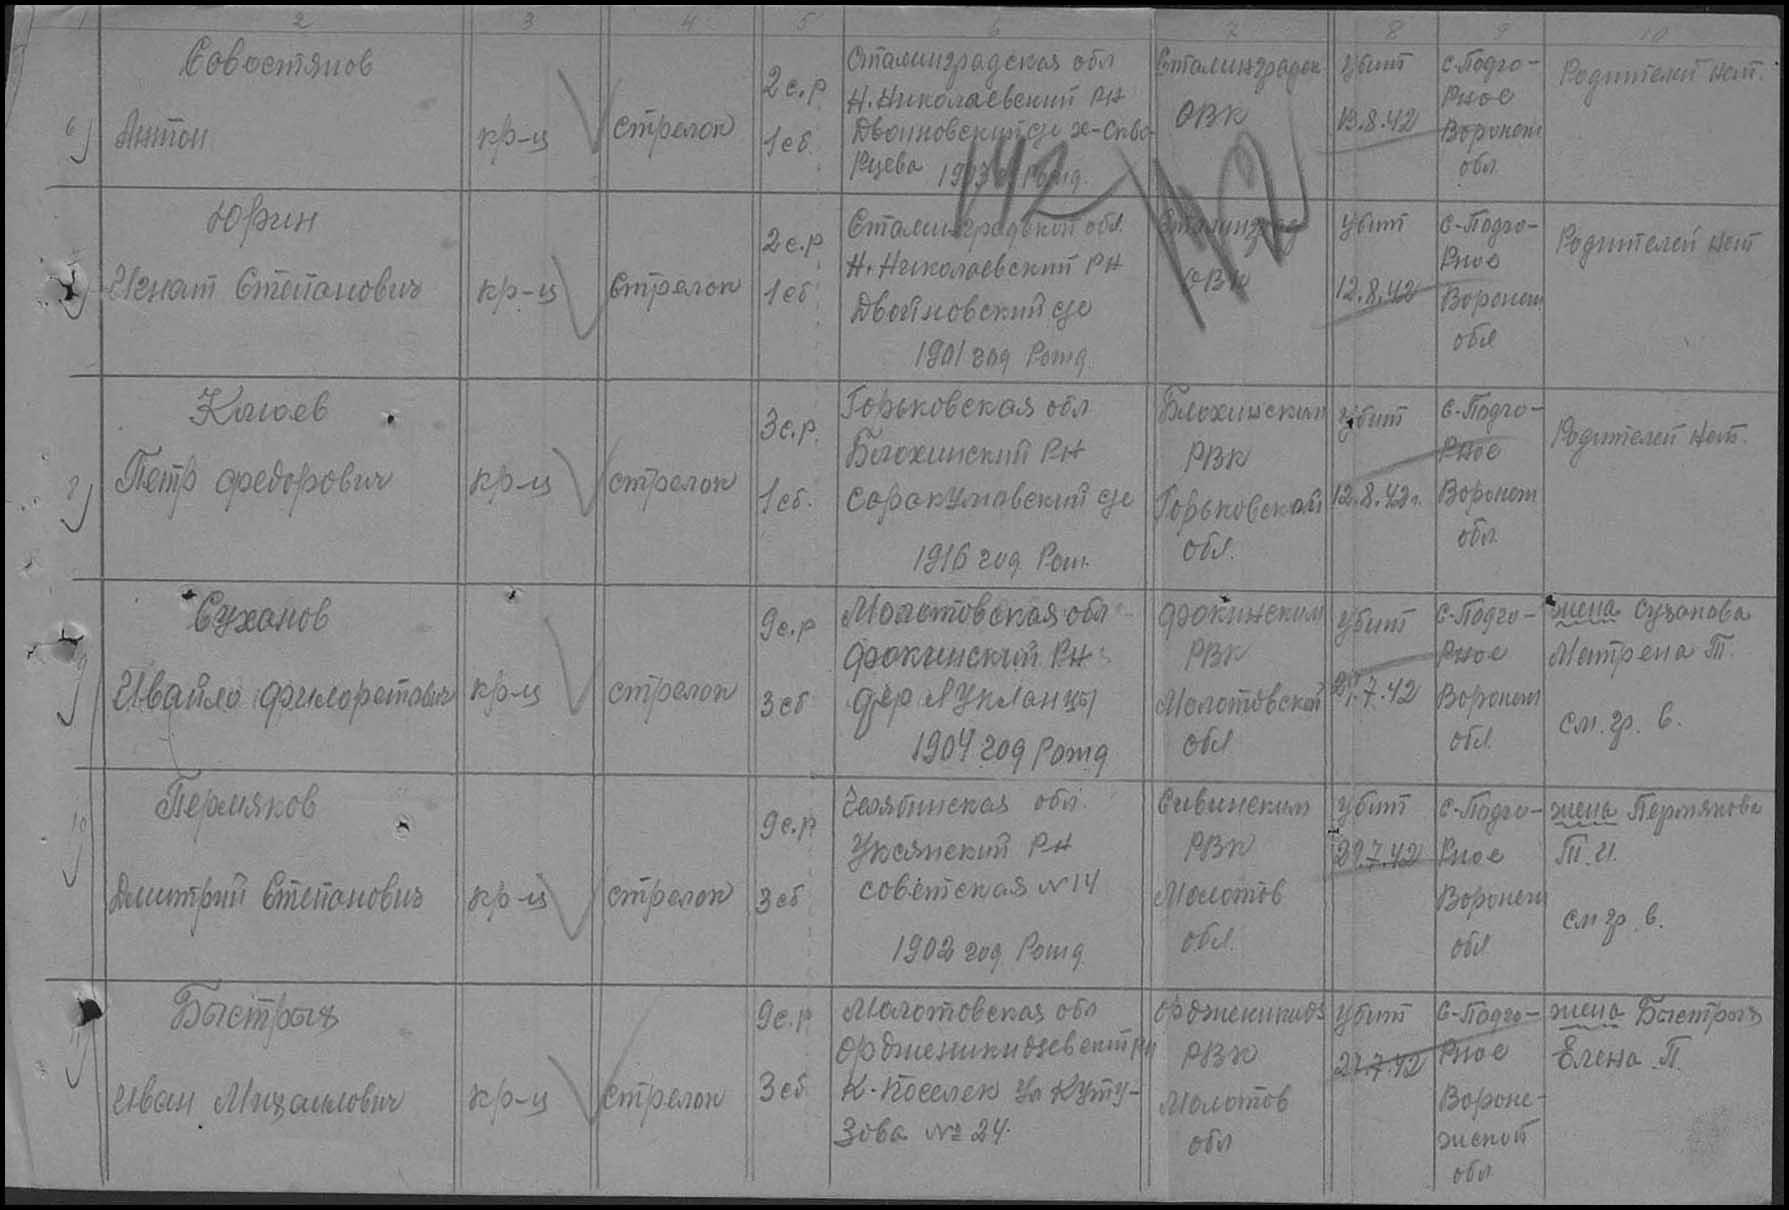 1 2 3 4 5 6 7 8 9 10
6) Совостянов
Антон
кр-ц
стрелок
2 с.р.
1 сб.
Сталинградская обл
Н.Николаевский РН
Двойновский с/с х-Скво-
рцева 1903 г Рожд.
Сталинградск
ОВК
убит
13.8.42
с-Подго-
рное
Воронеж
обл.
Родителей нет.
142
142
Юрин
Игнат Степанович
кр-ц
стрелок
2 с.р.
1 сб.
Сталинградской обл.
Н.Николаевский РН
Двойновский с/с
1901 год Рожд.
Сталинград
ОВК
убит
12.8.42
с-Подго-
рное
Воронеж
обл
Родителей нет
8) Катаев
Петр Федорович
кр-ц
стрелок
3 с.р.
1 сб.
Горьковская обл
Блохинский РН
с/с
1916 год Рож.
Блохинским
РВК
Горьковской
обл.
убит
12.8.42г.
с-Подго-
рное
Воронеж
обл.
Родителей нет.
9) Суханов
Филоретович
кр-ц
стрелок
9 с.р
3 сб
Молотовская обл
Фокинский РН
дер Лукланцы
1904 год Рожд
Фокинским
РВК
Молотовской
обл
убит
7.42
с-Подго-
рное
Воронеж
обл.
жена Суханова
Матрена Т.
см. гр. 6.
10) Пермяков
Дмитрий Степанович
кр-ц
стрелок
9 с.р
3 сб
Челябинская обл.
Уксянский РН
советская № 14
1902 год Рожд
Сивинским
РВК
Молотов
обл.
убит
29.7.42
с-Подго-
рное
Воронеж
обл
жена Пермякова
Т.И.
см гр. 6.
11) Быстрых
Иван Михаилович
кр-ц
стрелок
9 с.р
3 сб
Молотовская обл
Орджоникидзевский РН
К-Поселек ул Куту-
зова № 24.
Орджоникидз
РВК
Молотов
обл
убит
27.7.42
с-Подго-
рное
Вороне-
жской
обл
жена Быстрых
Елена П.